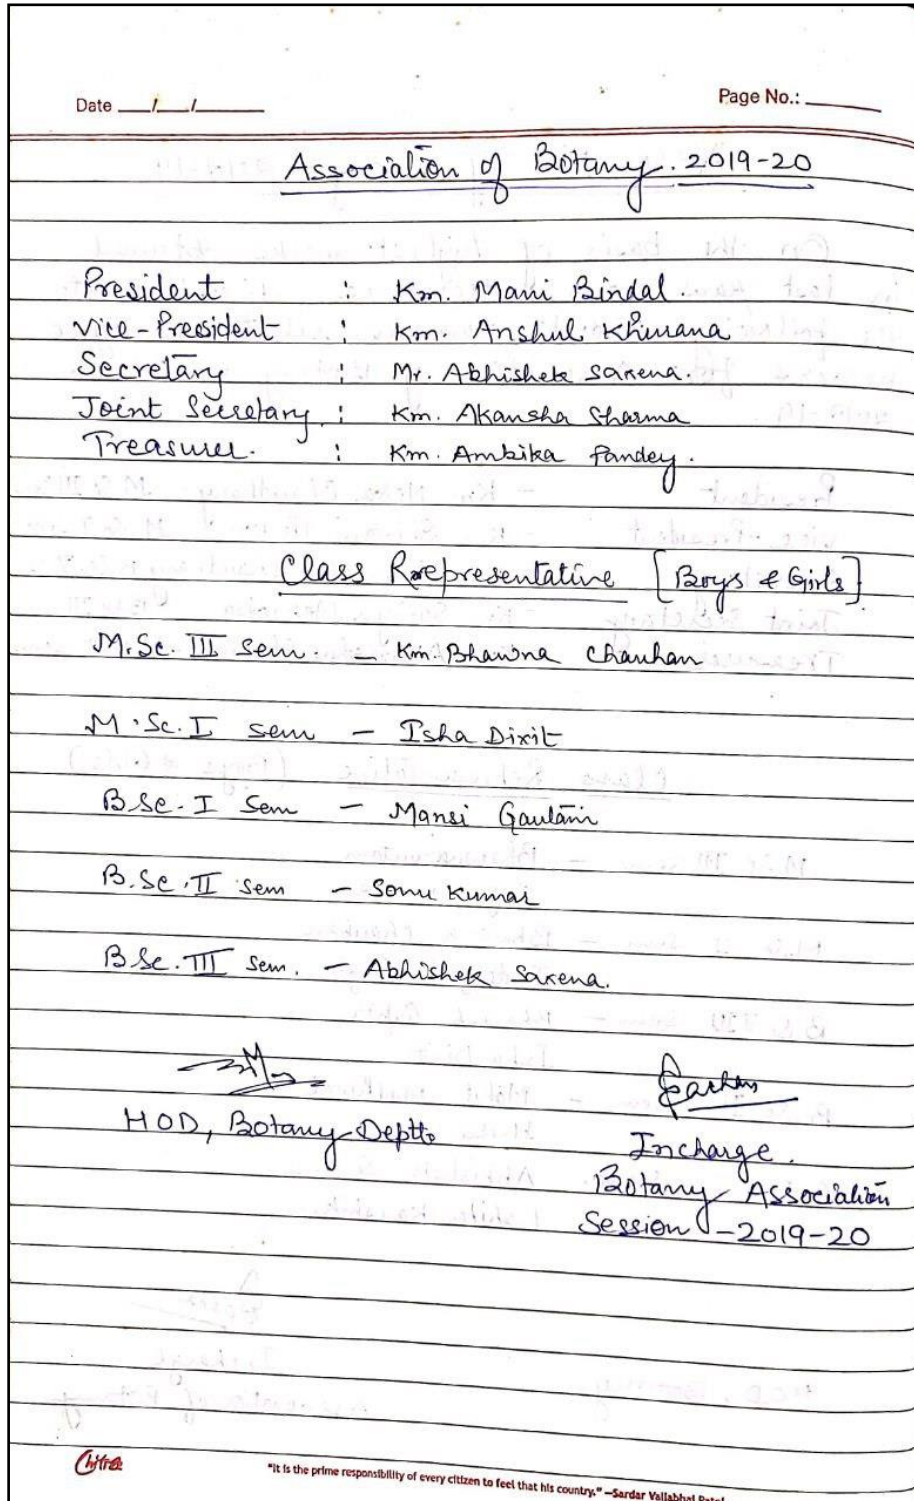 Date __/__/____ Page No.: ____
Association of Botany. 2019-20
President : Km. Mani Bindal.
Vice-President : Km. Anshul Khurana
Secretary : Mr. Abhishek Saxena.
Joint Secretary : Km. Akansha Sharma
Treasurer. : Km. Ambika Pandey.
Class Representative [Boys & Girls]
M.Sc. III Sem. - Km. Bhawna Chauhan
M.Sc. I sem - Isha Dixit
B.Sc. I Sem - Mansi Gautam
B.Sc. II Sem - Sonu Kumar
B.Sc. III Sem. - Abhishek Saxena.
HOD, Botany Deptt.
Incharge.
Botany Association
Session - 2019-20
Chitra
"It is the prime responsibility of every citizen to feel that his country." –Sardar Vallabhai Patel